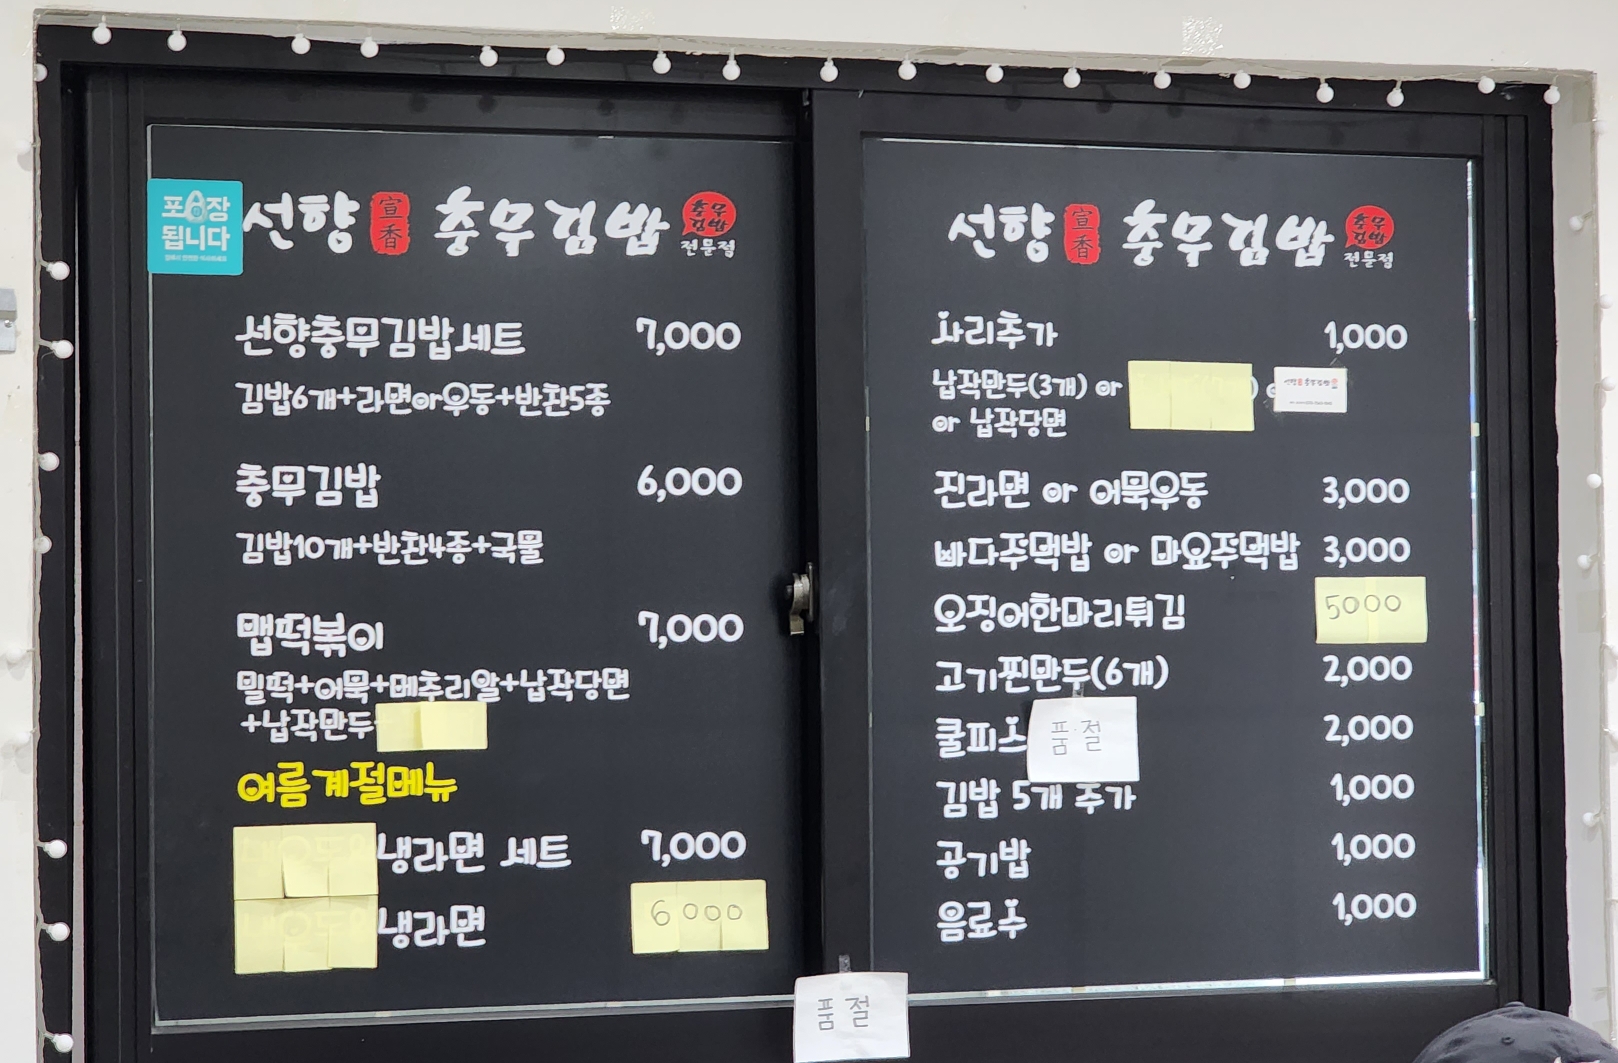 포장
됩니다
선향 宣香 충무김밥 충무김밥 전문점
선향충무김밥세트 7,000
김밥6개+라면or우동+반찬5종
충무김밥 6,000
김밥10개+반찬4종+국물
맵떡볶이 7,000
밀떡+어묵+메추리알+납작당면
+납작만두
여름계절메뉴
냉라면 세트 7,000
냉라면 6000
선향 宣香 충무김밥 충무김밥 전문점
사리추가 1,000
납작만두(3개) or
or 납작당면
진라면 or 어묵우동 3,000
바다주먹밥 or 마요주먹밥 3,000
오징어한마리튀김 5000
고기찐만두(6개) 2,000
쿨피스 품절 2,000
김밥 5개 추가 1,000
공기밥 1,000
음료수 1,000
품절